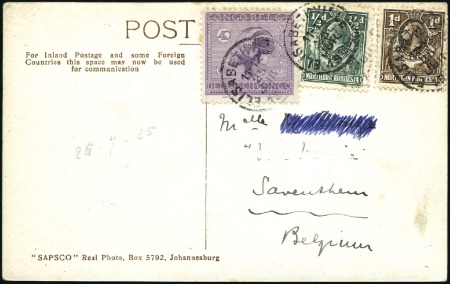 POST
For Inland Postage and some Foreign
Countries this space may now be used
for communication
CONGO BELGE
NORTHERN RHODESIA
NORTHERN RHODESIA
ELISABETHVILLE
25-7-25
Melle
Saventhem
Belgium
"SAPSCO" Real Photo, Box 5792, Johannesburg